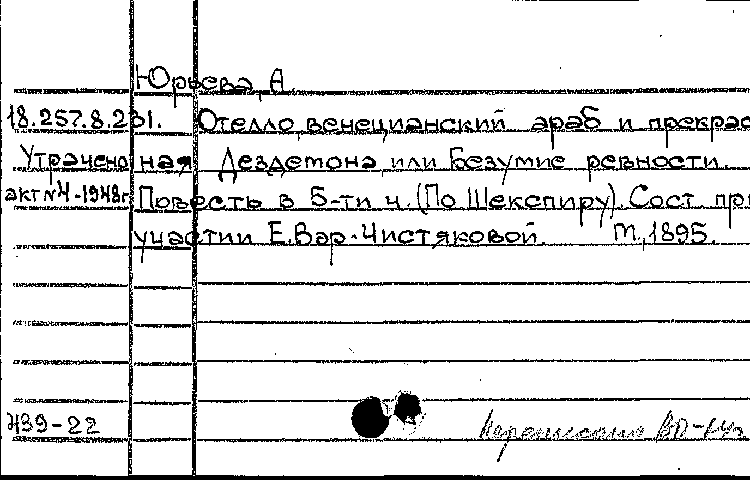 Юрьева, А.
18.257.8.231. Отелло, венецианский араб и прекрас
Утрачено ная Дездемона или Безумие ревности.
акт №4-1948г. Повесть в 5-ти ч. (По Шекспиру). Сост при
участии Е.Вар.Чистяковой. М., 1895.
Н39-22 Переписано